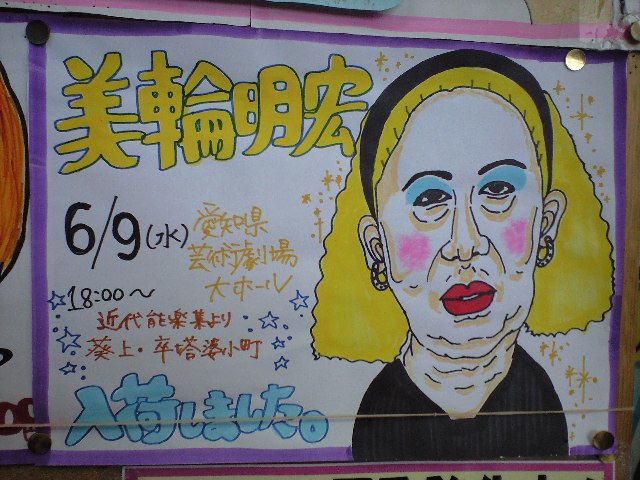 美輪明宏
6/9(水)
愛知県
芸術劇場
大ホール
18:00〜
近代能楽集より
葵上・卒塔婆小町
入荷しました。